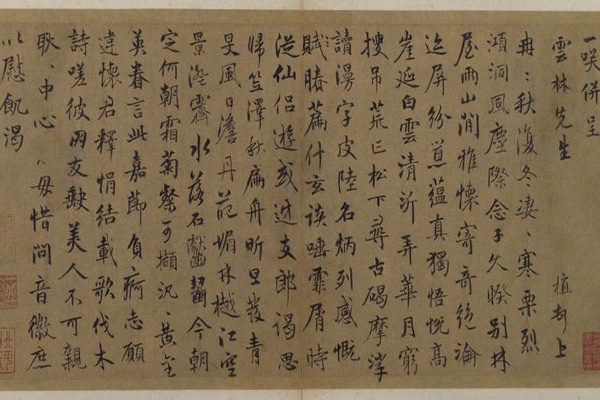 一咲併呈
雲林先生 上
冉〻秋復冬凄〻寒栗烈
澒洞風塵際念子久睽別林
屋兩山間雅懷寄奇絕淪
屏紛 蘊真獨悟悅高
崖延白雲清沂弄華月窮
搜吊荒 松下尋古碣摩挲
讀漫字皮陸名炳列感慨
賦 篇什玄談唾霏屑時
從仙侶遊或 支郎謁思
歸笠澤 扁舟昕旦發青
旻風日澹丹葩媚林樾江空
景 霽水落石 今朝
定何朝霜菊粲可擷況 黃金
英眷言此嘉節負痾志願
違懷君釋悁結載歌伐木
詩嗟彼朋友缺美人不可親
耿〻中心〻毋惜問音徽庶
以慰飢渴